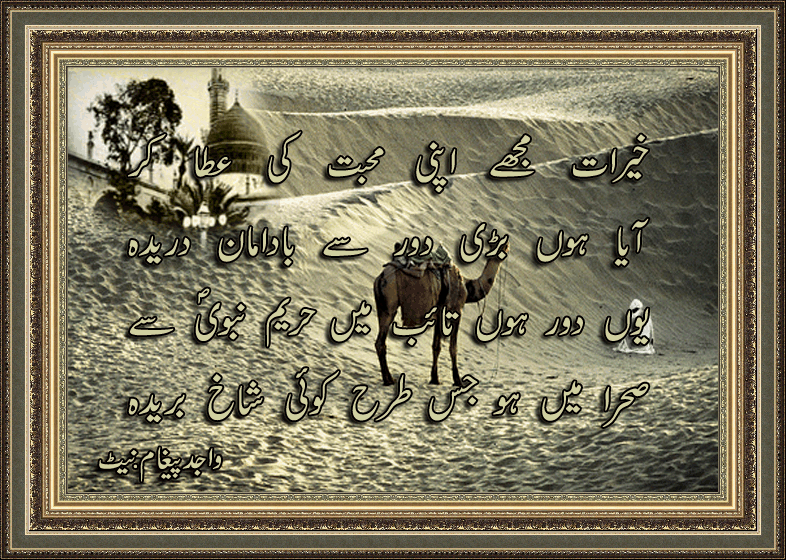 خیرات مجھے اپنی محبت کی عطا کر
آیا ہوں بڑی دور سے بادامان دریدہ
یوں دور ہوں تائب میں حریم نبویؐ سے
صحرا میں ہو جس طرح کوئی شاخ بریدہ
واجد پیغام.نیٹ